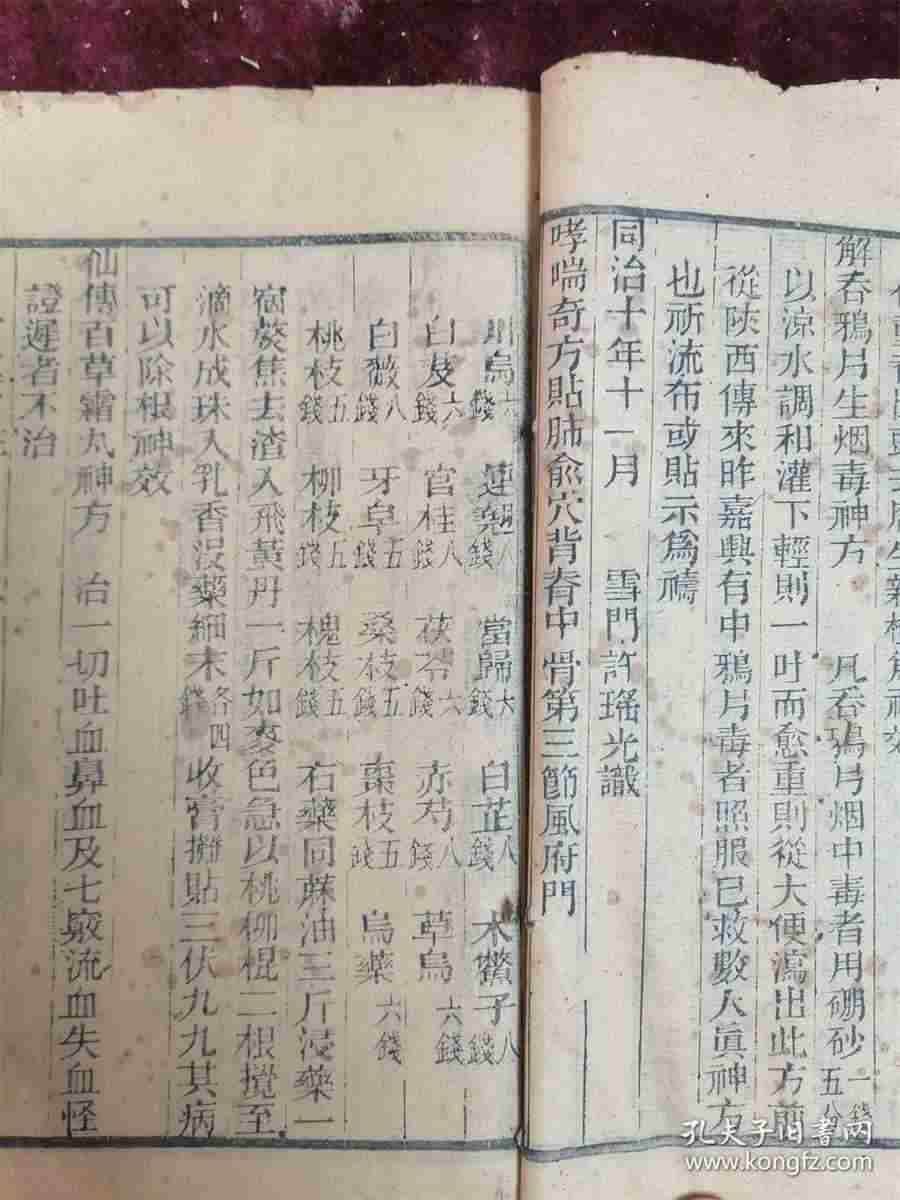 解吞鴉片生烟毒神方　凡吞鴉片烟中毒者用硼砂一錢五分
以涼水調和灌下輕則一吐而愈重則從大便瀉出此方前
從陝西傳來昨嘉興有中鴉片毒者照服已救數人眞神方
也祈流布或貼示爲禱
同治十年十一月　雪門許瑤光識
哮喘奇方貼肺俞穴背脊中骨第三節風府門
川烏六錢　連翹八錢　當歸六錢　白芷八錢　木鱉子八錢
白芨六錢　官桂八錢　茯苓六錢　赤芍八錢　草烏六錢
白蘞八錢　牙皁五錢　桑枝五錢　棗枝五錢　烏藥六錢
桃枝五錢　柳枝五錢　槐枝五錢　右藥同蔴油三斤浸藥一
宿熬焦去渣入飛黃丹一斤如麥色急以桃柳棍二根攪至
滴水成珠入乳香沒藥細末各四錢收膏攤貼三伏九九其病
可以除根神效
仙傳百草霜丸神方　治一切吐血鼻血及七竅流血失血怪
證遲者不治
孔夫子旧书网
www.kongfz.com